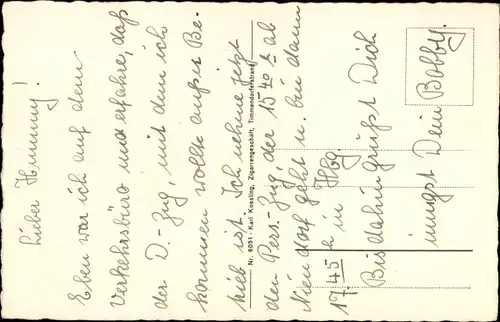 Lieber Hummy!
Eben war ich auf dem
Verkehrsbüro und erfahre, daß
der D.-Zug, mit dem ich
kommen wollte außer Be-
trieb ist. Ich nehme jetzt
den Pers.-Zug der 15 40 h ab
Niendorf geht u. bin dann
17.45 h in Hbg.
Bis dahin grüßt Dich
innigst Dein Bobby.
Nr. 6051 · Karl Koesling, Zigarrengeschäft, Timmendorferstrand